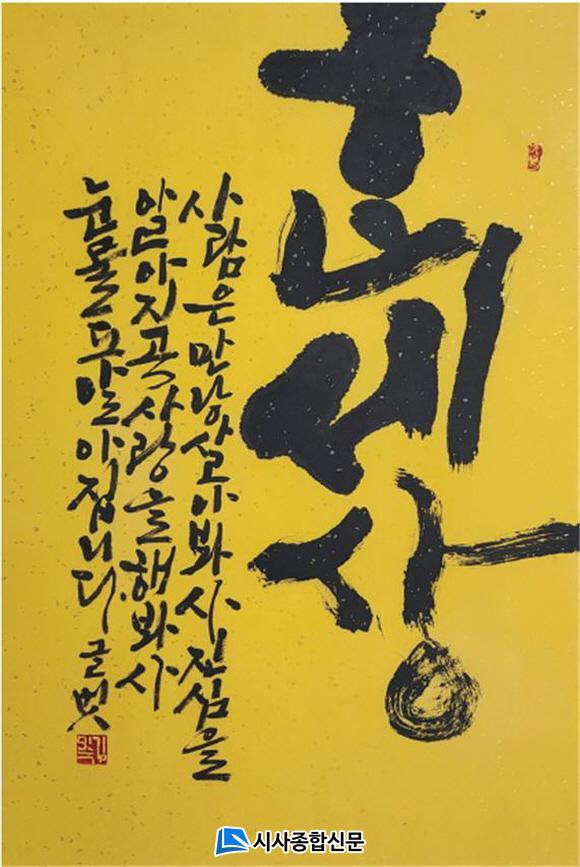 ᄒᆞᆫ세상
사람은 만낭 살아봐사 진심을
알아지곡 사랑을 해봐사
눈물도 알아집니다 글벗
시사종합신문